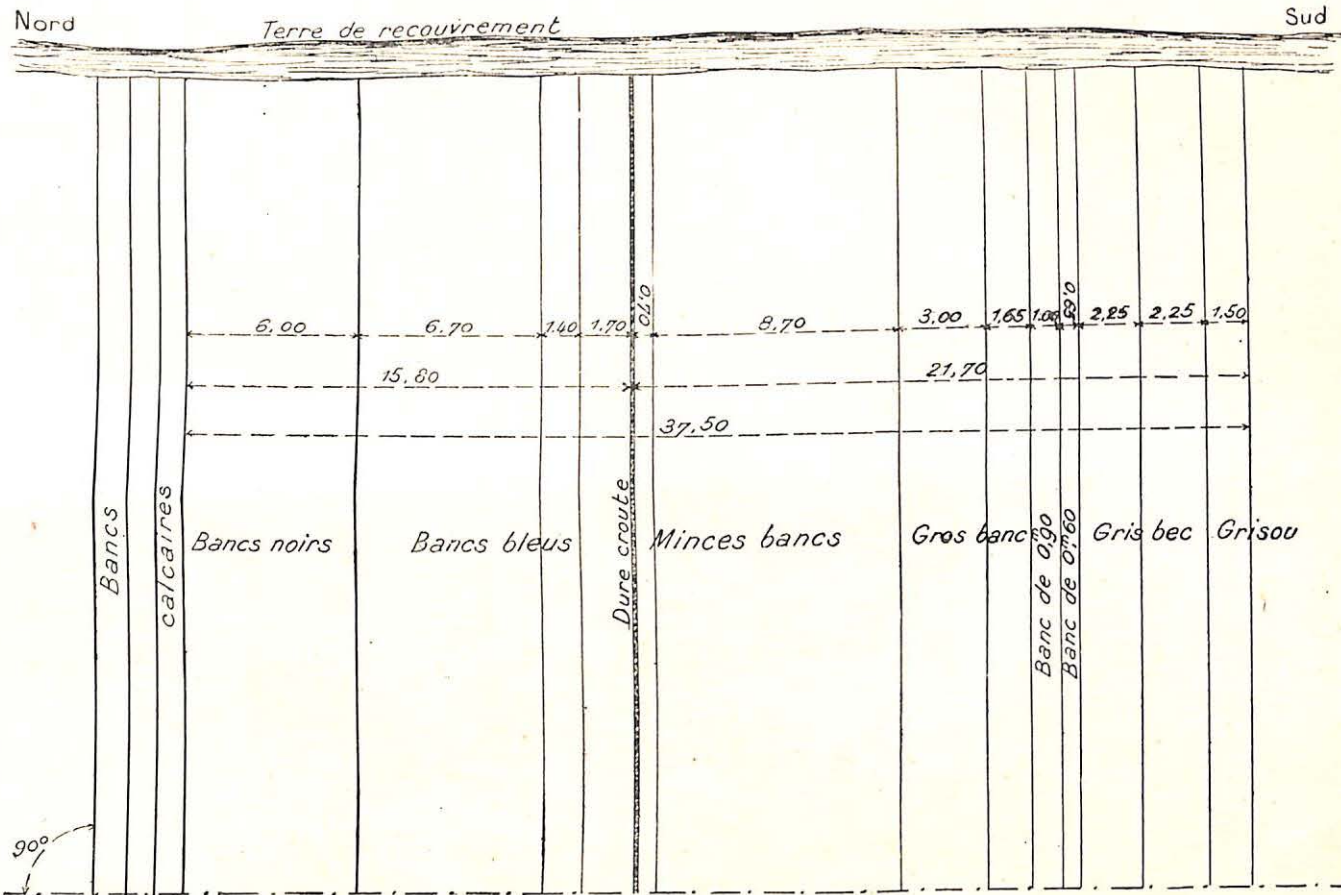 Nord
Sud
Terre de recouvirement
6,00
6.70
1.40
1.70
0.70
8.70
3.00
1,65
1.00
0.65
2.25
2.25
1.50
15.80
21,70
37.50
Bancs
calcaires
Bancs noirs
Bancs bleus
Dure croute
Minces bancs
Gros bancs
Banc de 0,90
Banc de 0m60
Gris bec
Grisou
90°